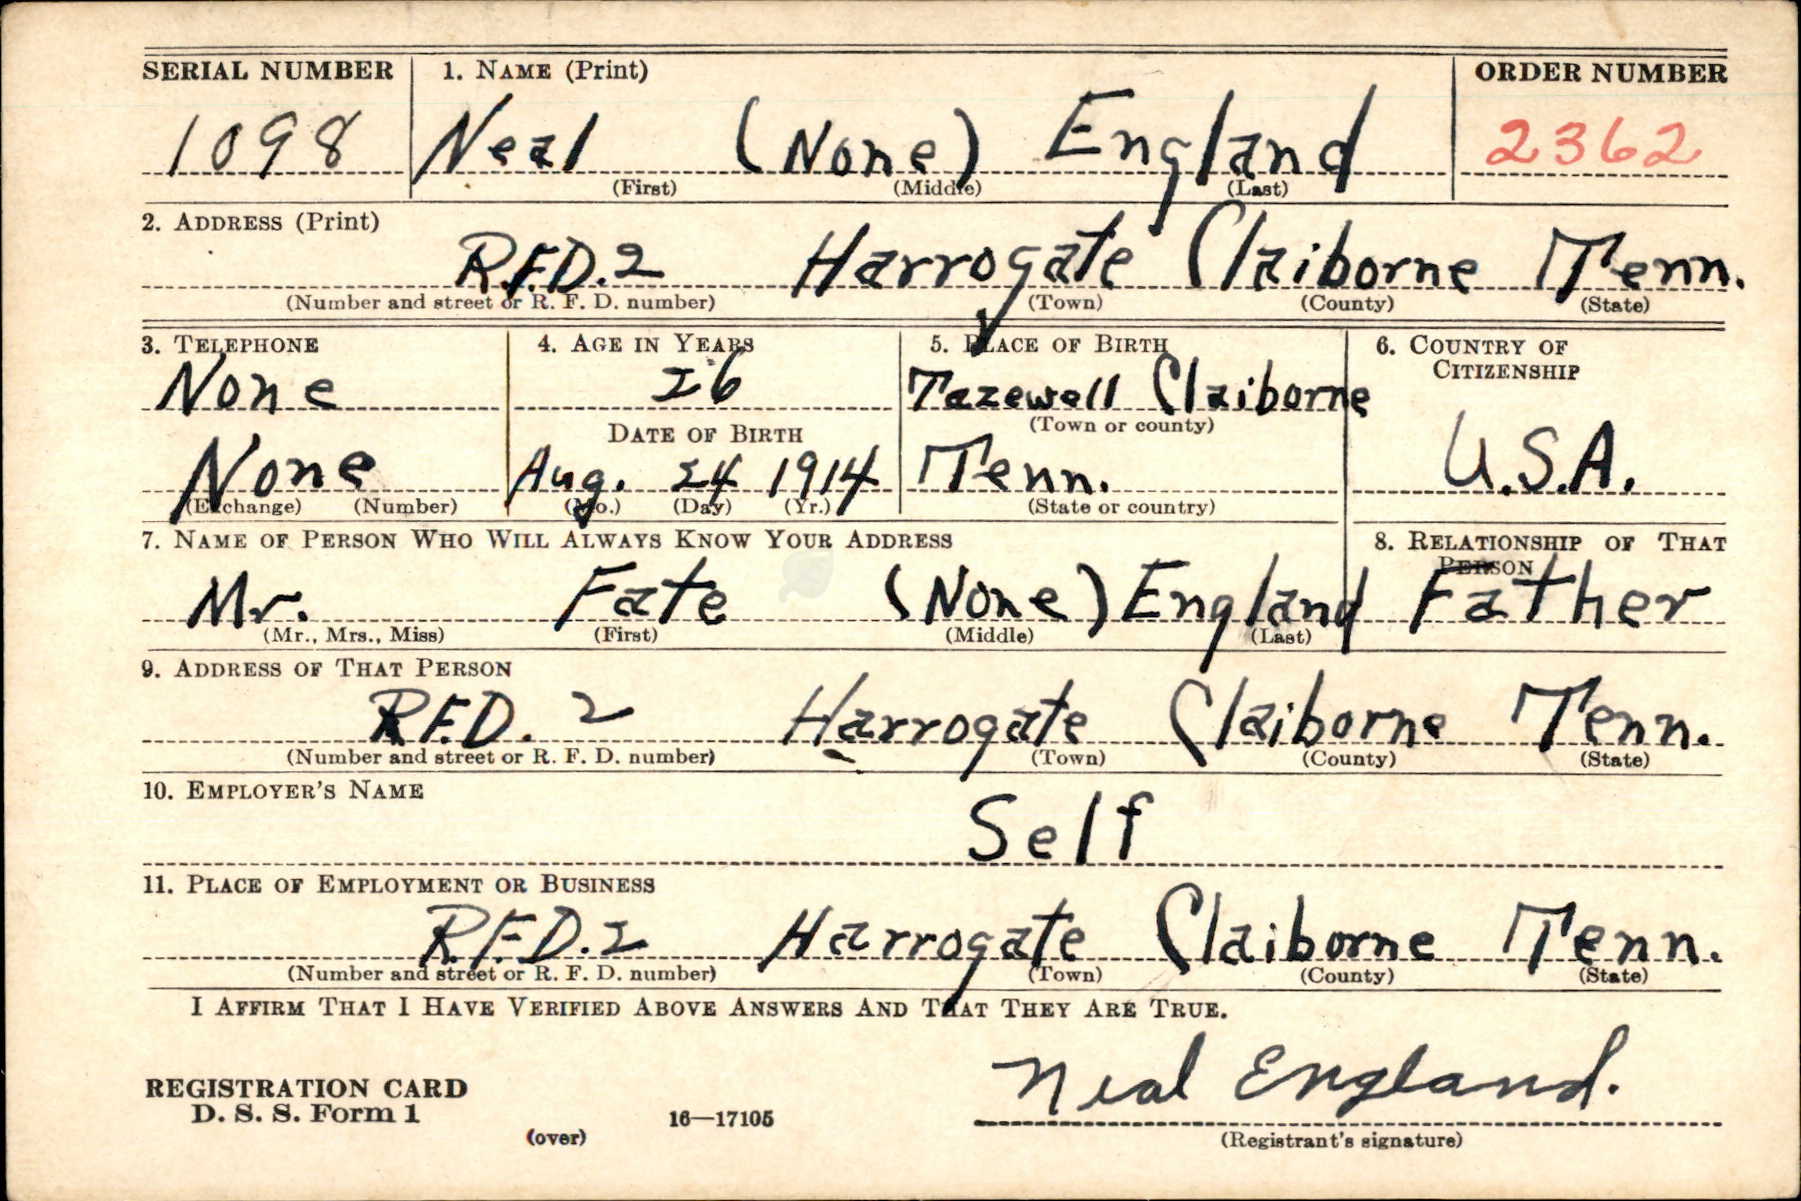 SERIAL NUMBER 1. NAME (Print) ORDER NUMBER
1098 Neal (None) England 2362
(First) (Middle) (Last)
2. ADDRESS (Print)
R.F.D. 2 Harrogate Claiborne Tenn.
(Number and street or R. F. D. number) (Town) (County) (State)
3. TELEPHONE 4. AGE IN YEARS 5. PLACE OF BIRTH 6. COUNTRY OF CITIZENSHIP
None 26 Tazewell Claiborne
DATE OF BIRTH (Town or county)
None Aug. 24 1914 Tenn. U.S.A.
(Exchange) (Number) (Mo.) (Day) (Yr.) (State or country)
7. NAME OF PERSON WHO WILL ALWAYS KNOW YOUR ADDRESS 8. RELATIONSHIP OF THAT PERSON
Mr. Fate (None) England Father
(Mr., Mrs., Miss) (First) (Middle) (Last)
9. ADDRESS OF THAT PERSON
R.F.D. 2 Harrogate Claiborne Tenn.
(Number and street or R. F. D. number) (Town) (County) (State)
10. EMPLOYER'S NAME
Self
11. PLACE OF EMPLOYMENT OR BUSINESS
R.F.D. 2 Harrogate Claiborne Tenn.
(Number and street or R. F. D. number) (Town) (County) (State)
I AFFIRM THAT I HAVE VERIFIED ABOVE ANSWERS AND THAT THEY ARE TRUE.
Neal England.
REGISTRATION CARD
D. S. S. Form 1 16—17105
(over) (Registrant's signature)